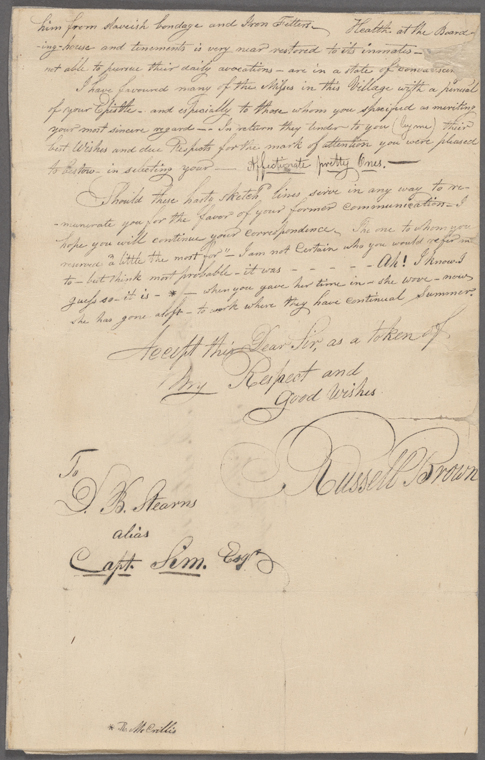 him from slaveish bondage and Iron Fetters. Health at the Board-
ing-house and tenements is very near restored to its inmates -
not able to pursue their daily avocations - are in a state of
I have favoured many of the Misses in this Village with a perusal
of your Epistle - and especially to those whom you specified as meriting
your most sincere regard - - In return they tender to you (by me) their
best Wishes and due Respects for the mark of attention you were pleased
to bestow - in selecting your - Affectionate pretty Ones. -
Should these hasty sketch'd lines serve in any way to re-
munerate you for the favor of your former communication - I
hope you will continue your correspondence. The one to whom you
"a little the most for" - I am not Certain who you would refer me
to - but think most probable - it was - - - - - Ah! I know I
guess so - it is - * - when you gave her time in - she wove - now
she has gone aloft - to work where they have continual Summer.
Accept this, Dear Sir, as a token of
My Respect and
Good Wishes
Russell Brown
To
D. B. Stearns
alias
Capt. Sim. Esqr.